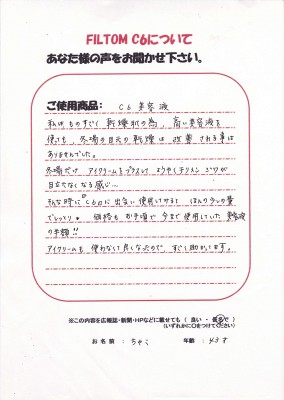 FILTOM C6について
あなた様の声をお聞かせ下さい。
ご使用商品: C6 美容液
私はものすごく 乾燥肌の為、高い美容液を
使っても 冬場の目元の乾燥は 改善される事は
ありませんでした。
冬場だけ アイクリームをプラスして ようやくチリメンジワが
目立たなくなる感じ…
そんな時『C6』に出会い 使用してみると ほんの少しの量
でしっとり。 価格も お手頃で 今まで使用していた 美容液
の半額!!
アイクリームも 使わなくて良くなったので、すごく助かってます。
※この内容を広報誌・新聞・HPなどに載せても（ 良い ・ 匿名で ）
（いずれかに○をつけてください）
お名前： 年齢：43才